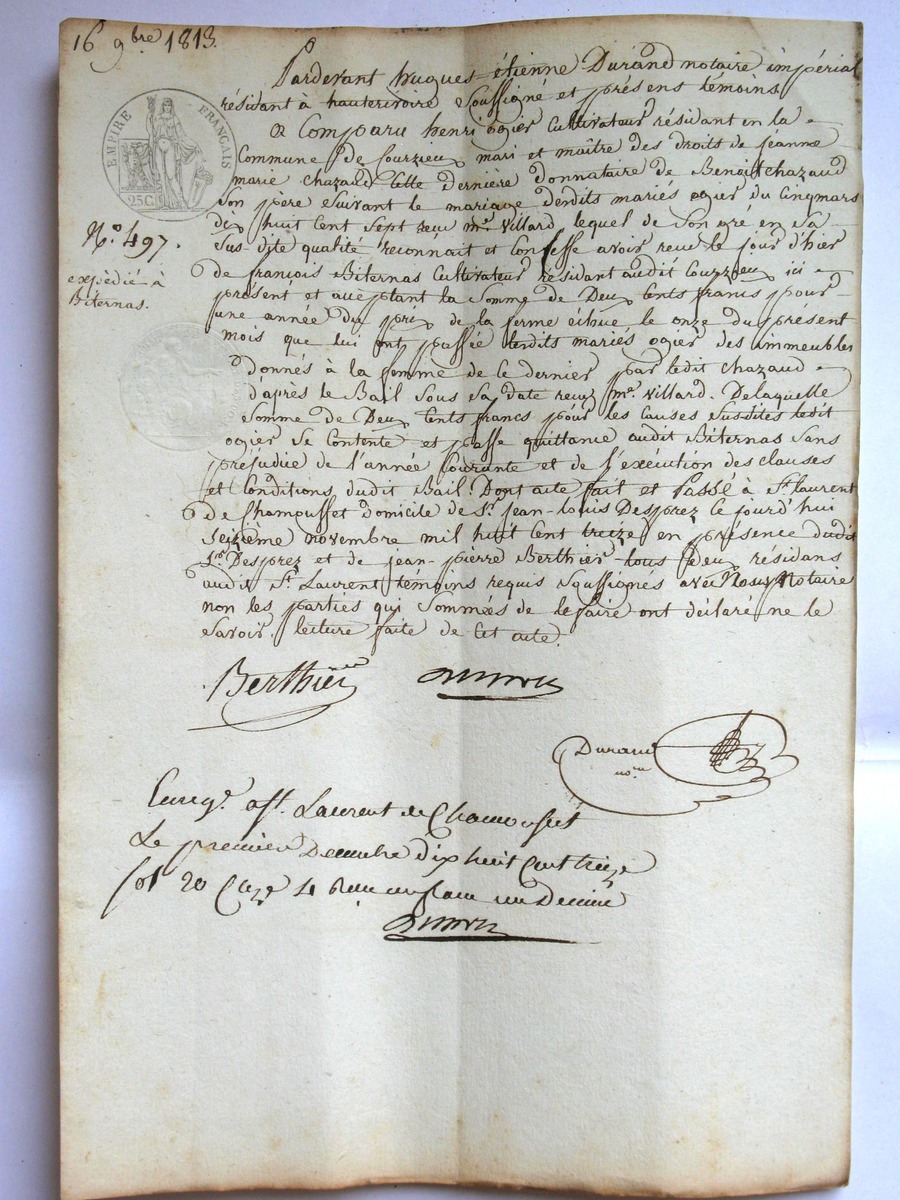 16 9bre 1813.
EMPIRE FRANÇAIS
25C.
N.o 497.
expédié à
Biternas.
Pardevant hugues-étienne Durand notaire impérial
résidant à hauterivoire soussigné et présens témoins
a Comparu henri ogier Cultivateur résidant en la
Commune de Courzieu mari et maître des droits de jeanne
marie chazaud Cette dernière donnataire de Benoît chazaud
son père suivant le mariage desdits mariés ogier du Cinq mars
dix huit Cent Sept reçu me. Villard lequel de Son gré en sa
sus-dite qualité reconnait et Confesse avoir reçu le jour d'hier
de françois Biternas Cultivateur résidant audit Courzieu ici
présent et acceptant la Somme de Deux Cents francs pour
une année du prix de la ferme échue le onze du présent
mois que lui ont passée lesdits mariés ogier des immeubles
donnés à la femme de ce dernier par ledit chazaud
d'après le Bail sous sa date reçu me. Villard. De laquelle
somme de Deux Cents francs pour les Causes susdites ledit
ogier se Contente et passe quittance audit Biternas sans
préjudice de l'année Courante et de l'exécution des clauses
et Conditions dudit Bail. Dont acte fait et Passé à St. laurent
de Chamousset domicile de Sr. jean-louis Desprez ce jourd'hui
seizième novembre mil huit Cent treize en présence dudit
Sr. Desprez et de jean-pierre Berthier tous deux résidans
audit St. Laurent témoins requis Soussignés avec Nous Notaire
non les parties qui Sommées de le faire ont déclaré ne le
savoir. lecture faite de Cet acte.
Berthier
Durand
nore
Enregé. à St. Laurent de Chamousset
Le premier Décembre dix huit Cent treize
fol 20 Caze 4 Reçu un franc un Decime